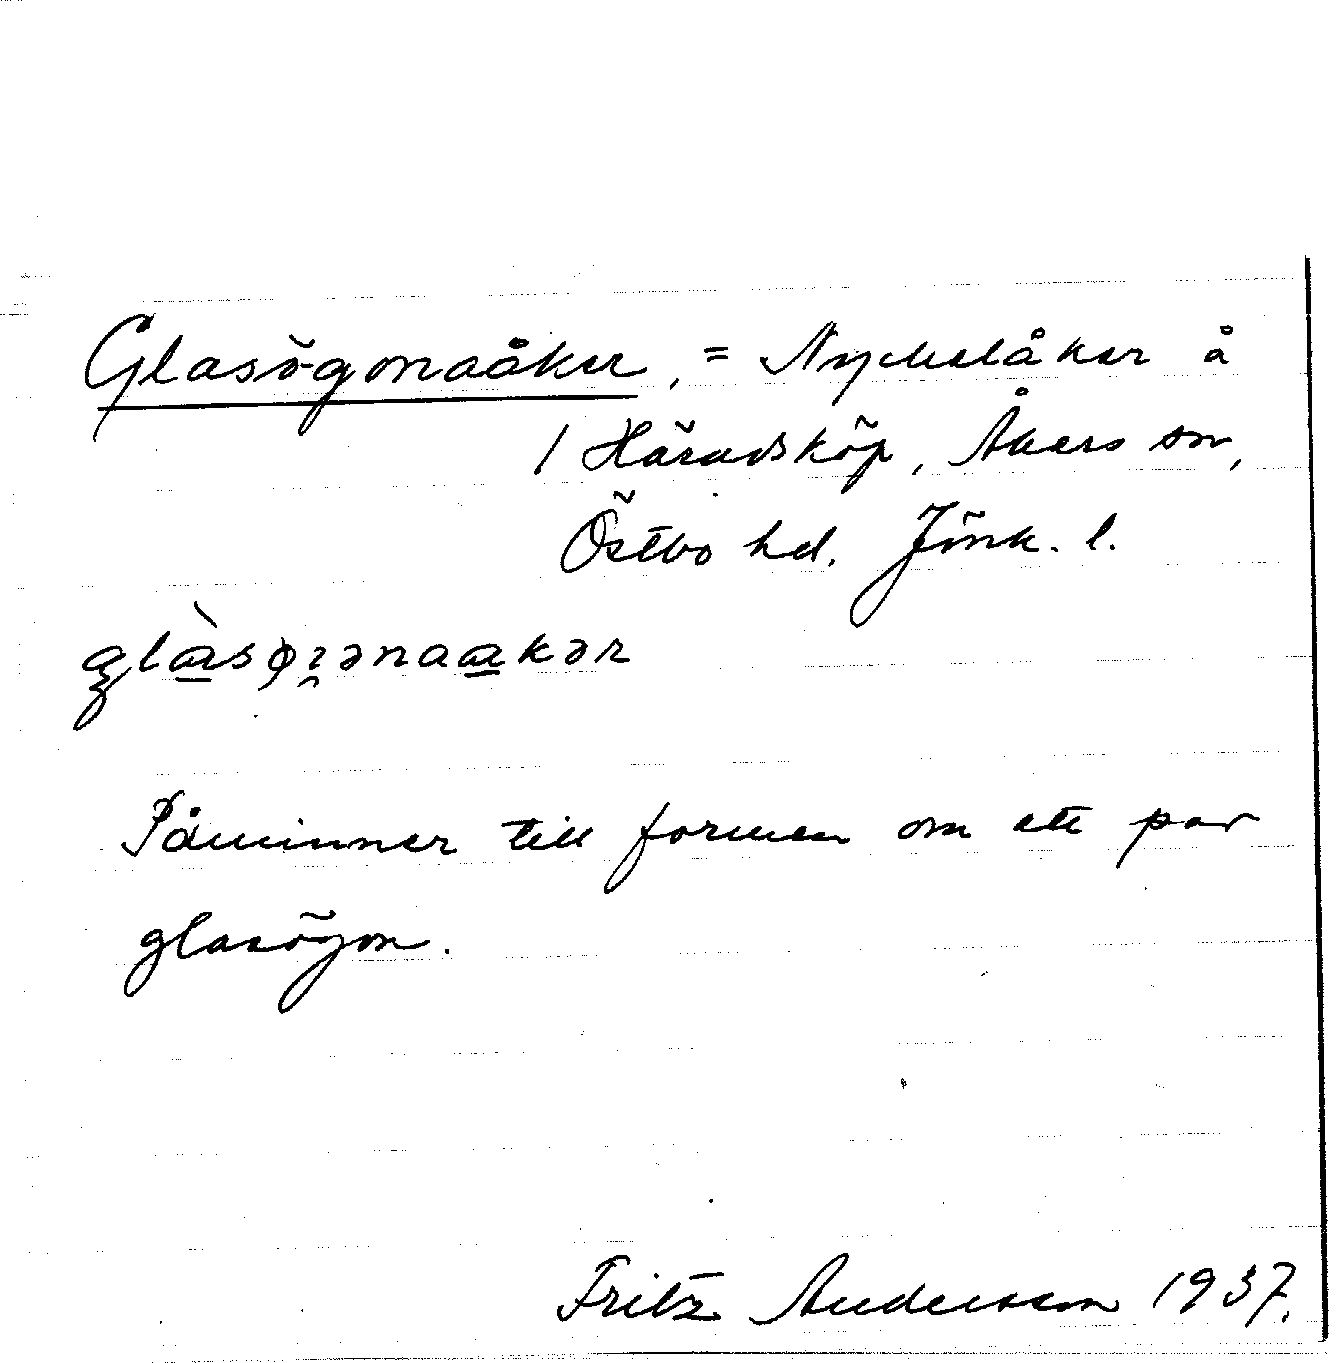 Glasögonaåker, = Nyckelåker å
1 Häradsköp, Åkers sn,
Östbo hd. Jönk. l.
Påminner till formen om ett par
glasögon.
Fritz Andersson 1937.